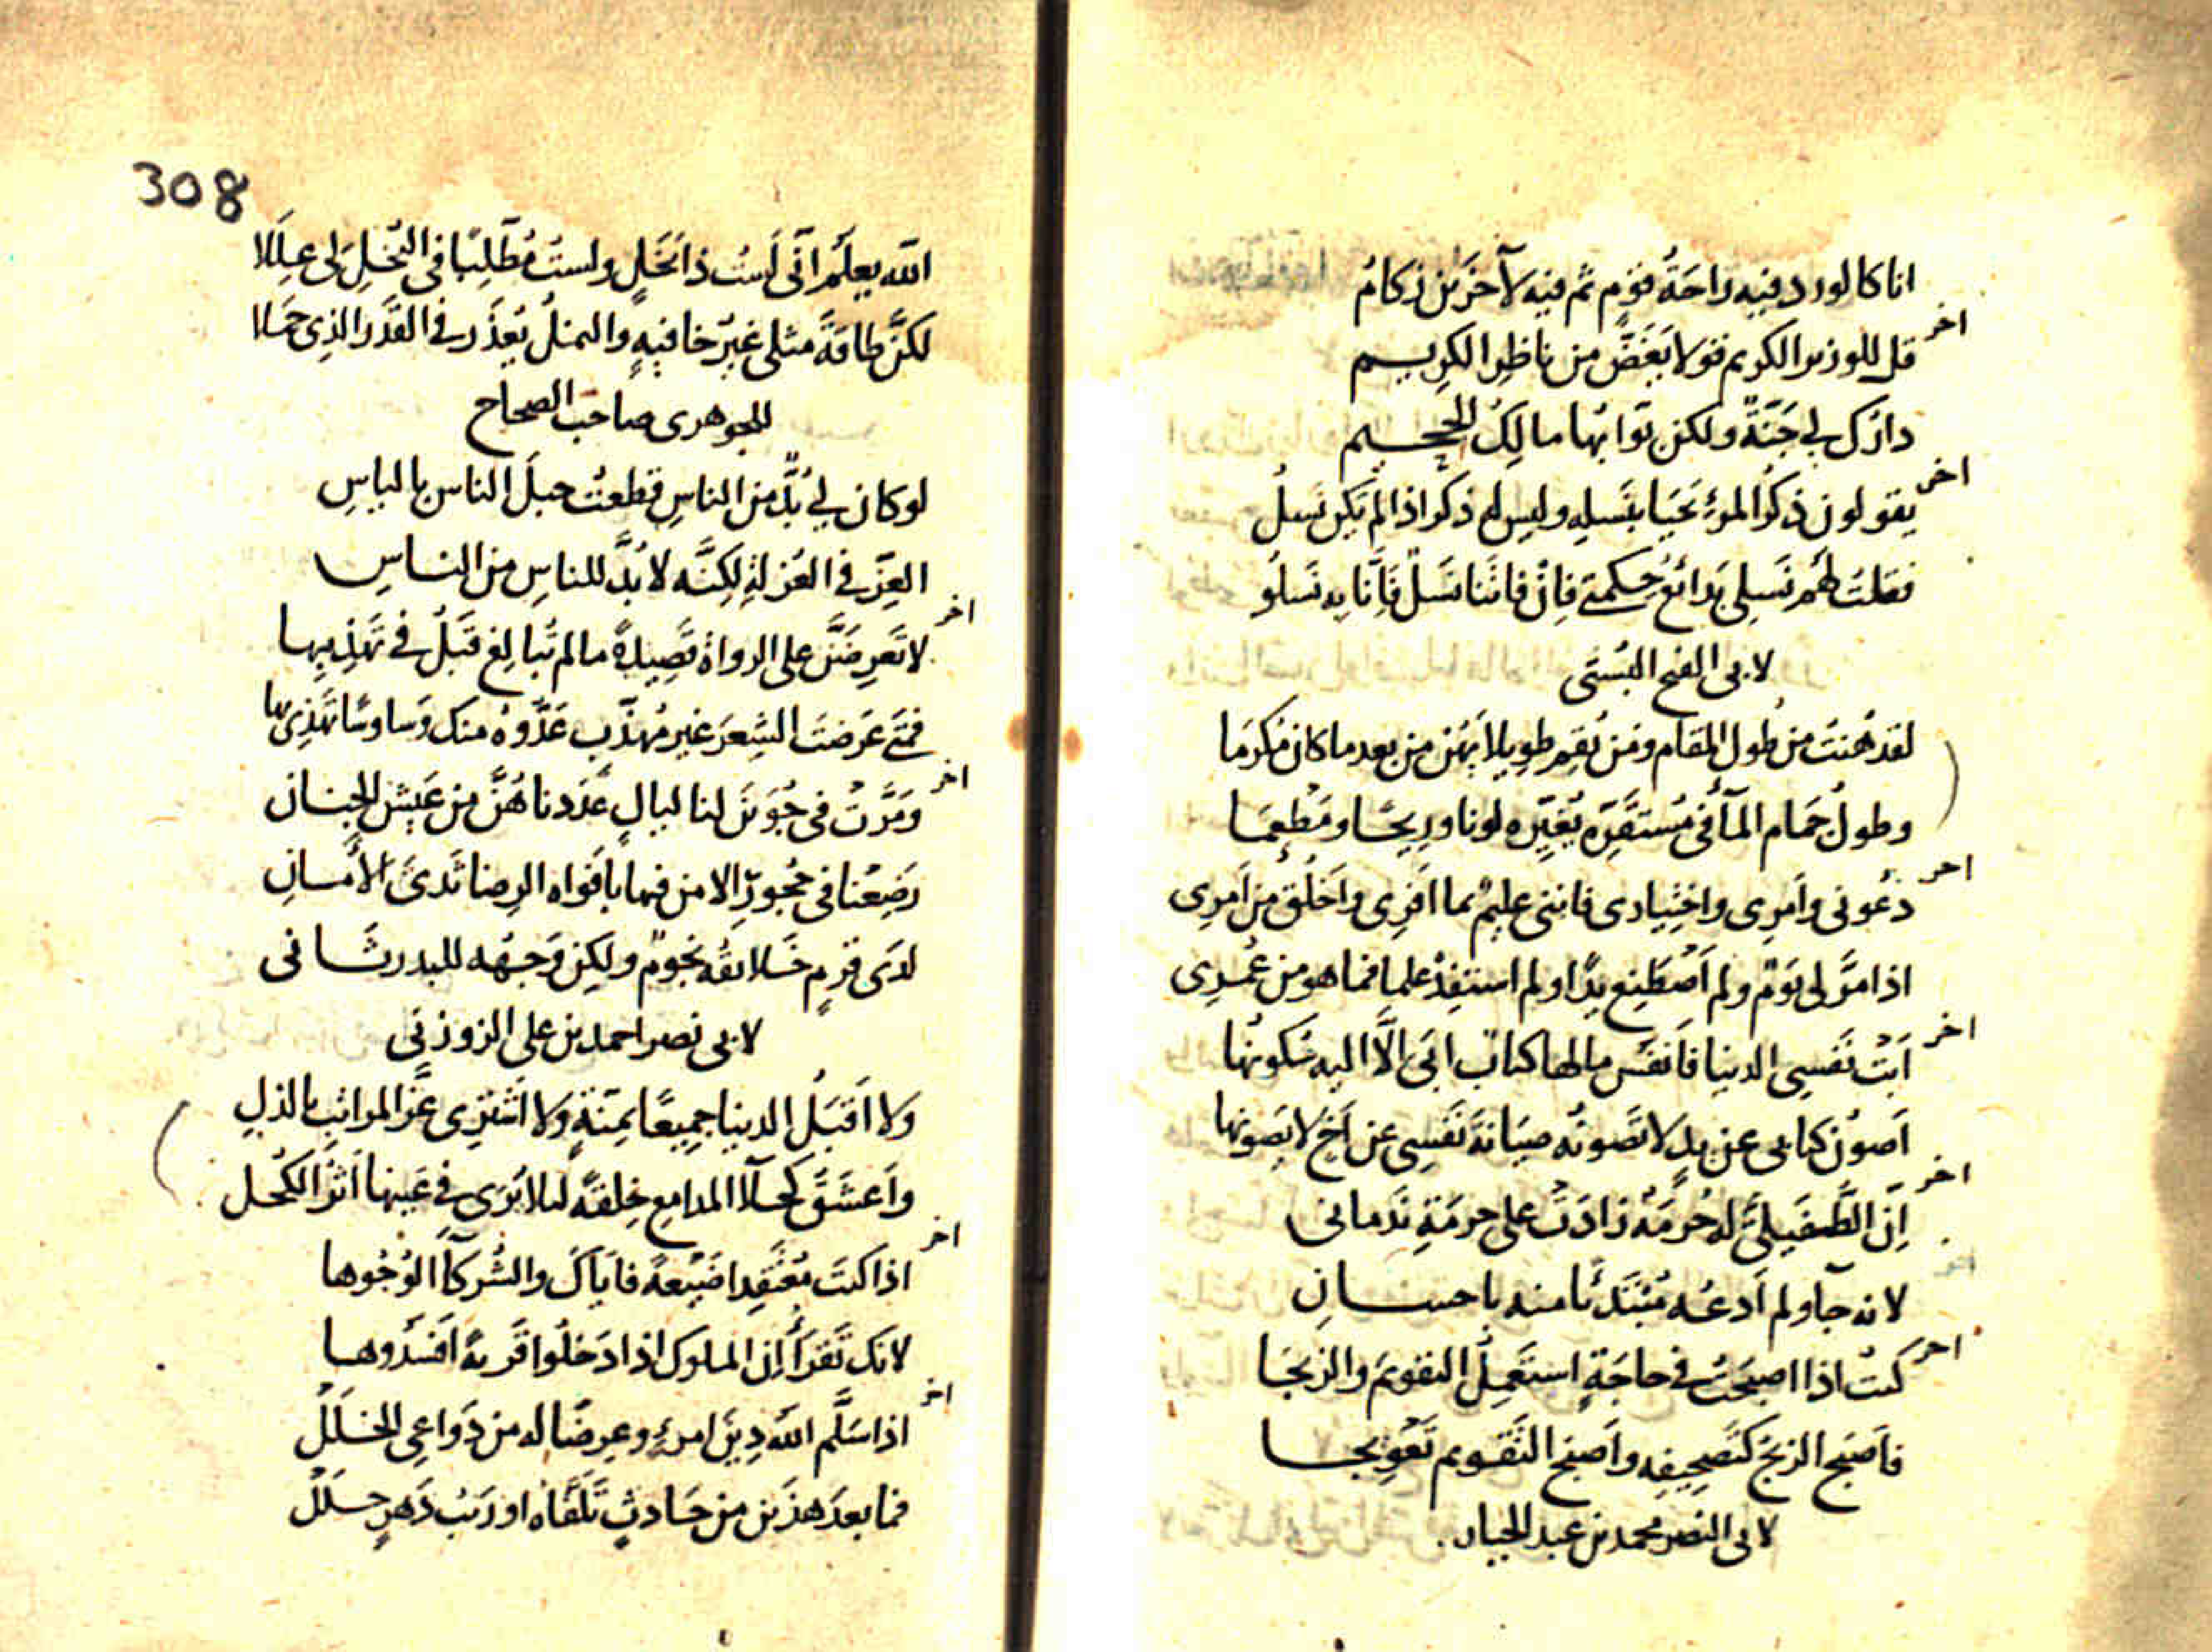 انا كالورد فيه راحَةُ قومٍ ثم فيه لآخَرَين زكامُ
اخر
قل للوزير الكريم قولا يَغُضُّ من ناظِر الكريم
دارُك لي جَنَّةٌ ولكن بَوّابُها مالِكُ الجحيم
اخر
يقولون ذكُر المرءِ يَحيَا بنَسلِه وليس له ذكر اذا لم يَكن نَسلُ
فقلت لهُم نَسلِى بَدائعُ حِكمتى فان فاتَنا نَسلٌ فَاِنّا به نَسلُو
لابى الفتح البُستى
لقد هُنتُ من طُول المقام ومَن يُقِم طويلا يَهُن من بعد ما كان مُكرَمَا
وطولُ جَمام المآءِ فى مُستقَرِّه يُغيِّره لونا وريحًا ومَطعَمَا
اخر
دعُونى واَمرِى واختِيارى فاننى عليمٌ بما اَفرِى واَخلُقُ من اَمرِى
اذا مَرَّ لى يَومٌ ولم اَصطَنِع يدًا ولم استفِدْ علما فما هو من عُمرِى
اخر
اَبَت نَفسِى الدنيا فاَنفَسُ مالها كتابٌ ابَى الَّا اليه سُكونُها
اَصوُن كتابى عن يدٍ لا تَصونُه صِيَانةَ نَفسِى عن اَخٍ لا يَصونها
اخر
اِنّ الطُّفَيلِىَّ له حُرمَةٌ زادَت على حرمَةِ نَدمانى
لانه جآء ولم اَدعُه مُبتَدئًا منه باحسانِ
اخر
كنت اذا اصبحَتُ فى حاجَةٍ استَعمِلُ التقويمَ والزيجَا
فاَصبَح الزيجُ كتَصحِيفِه واَصبَح التقويم تَعوِيجا
لابى النصر محمد بن عبد الجبار
308
الله يعلَمُ اَنّى لَستُ ذا بَخَلٍ ولستُ مُطَّلِبًا فى البُخلِ لى عِلَلا
لكنَّ طاقَةَ مثلى غيرُ خافيةٍ والنملُ يُعذَر فى القَدر الذى حَمَلا
للجوهرى صاحب الصحاح
لو كان لى بُدٌّ من الناسِ قطعتُ حبلَ الناس بالياسِ
العِزّ فى العُزلةِ لكنَّه لا بُدَّ للناسِ من الناسِ
اخر
لا تَعرِضَنَّ على الرواة قصِيدةً ما لم تُبالِغ قَبلُ فى تَهذِيبها
فمتى عَرَضتَ الشِعرَ غير مُهذَّبٍ عَدُّوهُ منك وَساوسًا تَهذِى بها
اخر
ومَرَّتْ فى جُوَينَ لنا ليالٍ عَدَدناهُنَّ من عَيش الجنان
رضِعْنا فى حُجورِ الامن فيها باَفواه الرِضا ثَدىَ الاَمانى
لدَى قرمٍ خَلائقُه نجومٌ ولكن وَجهُه للبدر ثَانى
لابى نصر احمد بن على الزوزنى
ولا اَقبَلُ الدنيا جميعًا بمِنّةٍ ولا اَشتَرِى عِزَّ المراتب بالذلِ
واَعشَقُ كَحلآءَ المدامع خِلقةً لئلا يُرَى فى عَينها اَثرُ الكُحل
اخر
اذا كنتَ مُعتَقِدا ضَيعةً فاياكَ والشُركآءَ الوُجُوها
لانك تَقرَأ اِن الملوك اذا دَخلُوا قَريةً اَفسَدُوها
اخر
اذا سَلَّم اللهُ دِينَ امرءٍ وعِرضًا له من دَواعِى الخَلَلْ
فما بعدَ هذَين من حَادثٍ تَلقَّاه او رَيبِ دَهرٍ جَلَلْ